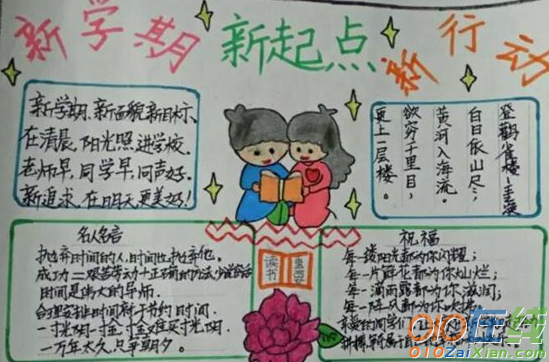 新学期 新起点 新行动
新学期、新面貌新目标、
在清晨、阳光照进学校、
老师早、同学早、同声好、
新追求、在明天更美好!
登鹳雀楼、王之涣
白日依山尽,
黄河入海流。
欲穷千里目,
更上一层楼。
名人名言
抛弃时间的人,时间也抛弃他。
成功=艰苦劳动+正确的方法+少说空话
时间是伟大的导师。
合理安排时间等于节约时间.
一寸光阴一寸金,寸金难买寸光阴.
一万年太久,只争朝夕。
读书
重要
祝福
每一缕阳光都为你闪耀;
每一片鲜花都为你灿烂;
每一滴雨露都为你滋润;
010在线
010ZaiXian.com